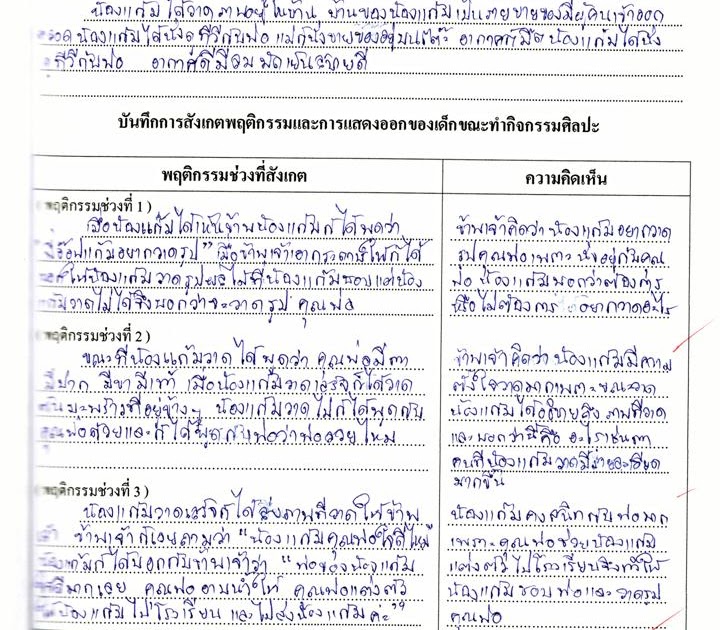 น้องแก้มได้วาดภาพอยู่ในบ้าน บ้านของน้องแก้มเป็นขายของมีผู้คนเข้าออก
น้องแก้มได้นั่ง ทีวีกับพ่อ แม่ก็นั่งขายของอยู่บน น้องแก้มได้นั่ง
ทีวีกับพ่อ อากาศดีมีลมพัดเย็นสบายดี
บันทึกการสังเกตพฤติกรรมและการแสดงออกของเด็กขณะทำกิจกรรมศิลปะ
พฤติกรรมช่วงที่สังเกต
ความคิดเห็น
(พฤติกรรมช่วงที่ 1)
เมื่อน้องแก้มได้เห็นข้าพน้องแก้มก็ได้พูดว่า
แก้มอยากวาดรูป" เมื่อข้าพเจ้าเอากระดาษให้ก็ได้
ให้น้องแก้มวาดรูปผลไม้ที่น้องแก้มชอบแต่น้อง
แก้มวาดไม่ได้จึงบอกว่าจะวาดรูป คุณพ่อ
ข้าพเจ้าคิดว่า น้องแก้มอยากวาด
รูปคุณพ่อเพราะ นั่งอยู่กับคุณ
พ่อ น้องแก้มบอกว่าต้องการ
หรือไม่ต้องการ อยากวาดอะไร
(พฤติกรรมช่วงที่ 2)
ขณะที่น้องแก้มวาด ได้พูดว่า คุณพ่อมีตา
มีปาก มีขา มีเท้า เมื่อน้องแก้มวาดเสร็จก็ได้วาด
ต้นมะพร้าวที่อยู่ข้างๆ น้องแก้มวาดไปก็ได้พูดกับ
คุณพ่อด้วยและก็ได้พูดกับพ่อว่าพ่อสวยไหม
ข้าพเจ้าคิดว่า น้องแก้มมีความ
ตั้งใจวาดมากเพราะ ขณะวาด
น้องแก้มได้อธิบายถึง ภาพที่วาด
และบอกว่านี่คือ อะไรเช่นตา
คนที่น้องแก้มวาดมีรายละเอียด
มากขึ้น
(พฤติกรรมช่วงที่ 3)
น้องแก้มวาดเสร็จก็ได้ส่งภาพที่วาดให้ข้าพ
ข้าพเจ้าก็เลยถามว่า "น้องแก้มคุณพ่อใจดีไหม
น้องแก้มก็ได้บอกกับข้าพเจ้าว่า "พ่อของน้องแก้ม
ใจดีมากเลย คุณพ่ออาบน้ำให้ คุณพ่อแต่งตัว
น้องแก้มไปโรงเรียน และไปส่งน้องแก้มค่ะ"
น้องแก้มคงสนิทกับพ่อมาก
เพราะคุณพ่อช่วยน้องแก้ม
แต่งตัวไปโรงเรียนจึงทำให้
น้องแก้มชอบพ่อและวาดรูป
คุณพ่อ